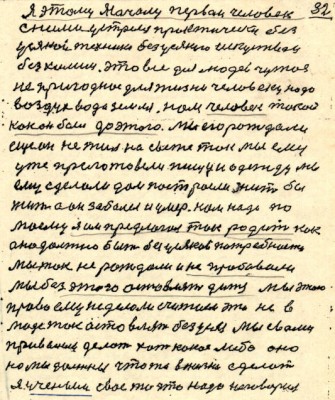 Я этому Началу первый человек 32
с ними устроил практически без
всякой техники без всякого искусства
без химии. это все для людей чужое
не пригодное для жизни человеку надо
воздух вода земля. нам человек такой
как он был до этого. Мы его рождали
еще он не жил на свете так мы ему
уже приготовили пищу и одежду мы
ему сделали дом построили жить бы
жить а он заболел и умер. нам надо по
моему я им предлагал так родить как
она должно быть без всяких потребностей
мы так не рождали и не пробовали
мы без этого оставлять дитя мы этого
право ему не делали считаем это не в
моде так оставлять без дела мы с вами
привыкли делать хоть какое либо оно
но мы должны что то в жизни сделать
я ученым свое то это надо наговорил